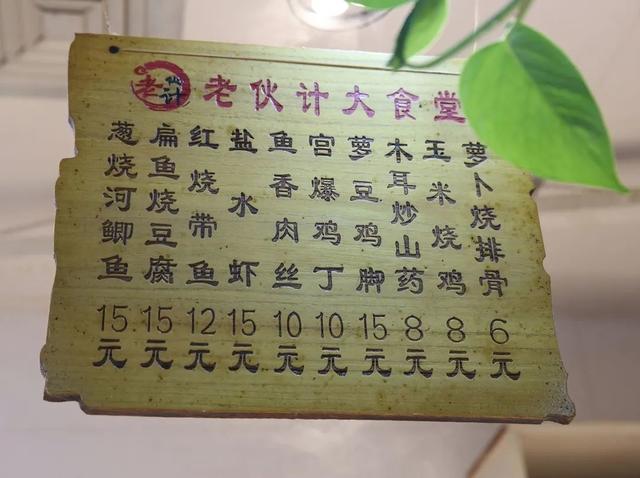 老伙计
老伙计大食堂
葱烧河鲫鱼 15元
扁鱼烧豆腐 15元
红烧带鱼 12元
盐水虾 15元
鱼香肉丝 10元
宫爆鸡丁 10元
萝豆鸡脚 15元
木耳炒山药 8元
玉米烧鸡 8元
萝卜烧排骨 6元